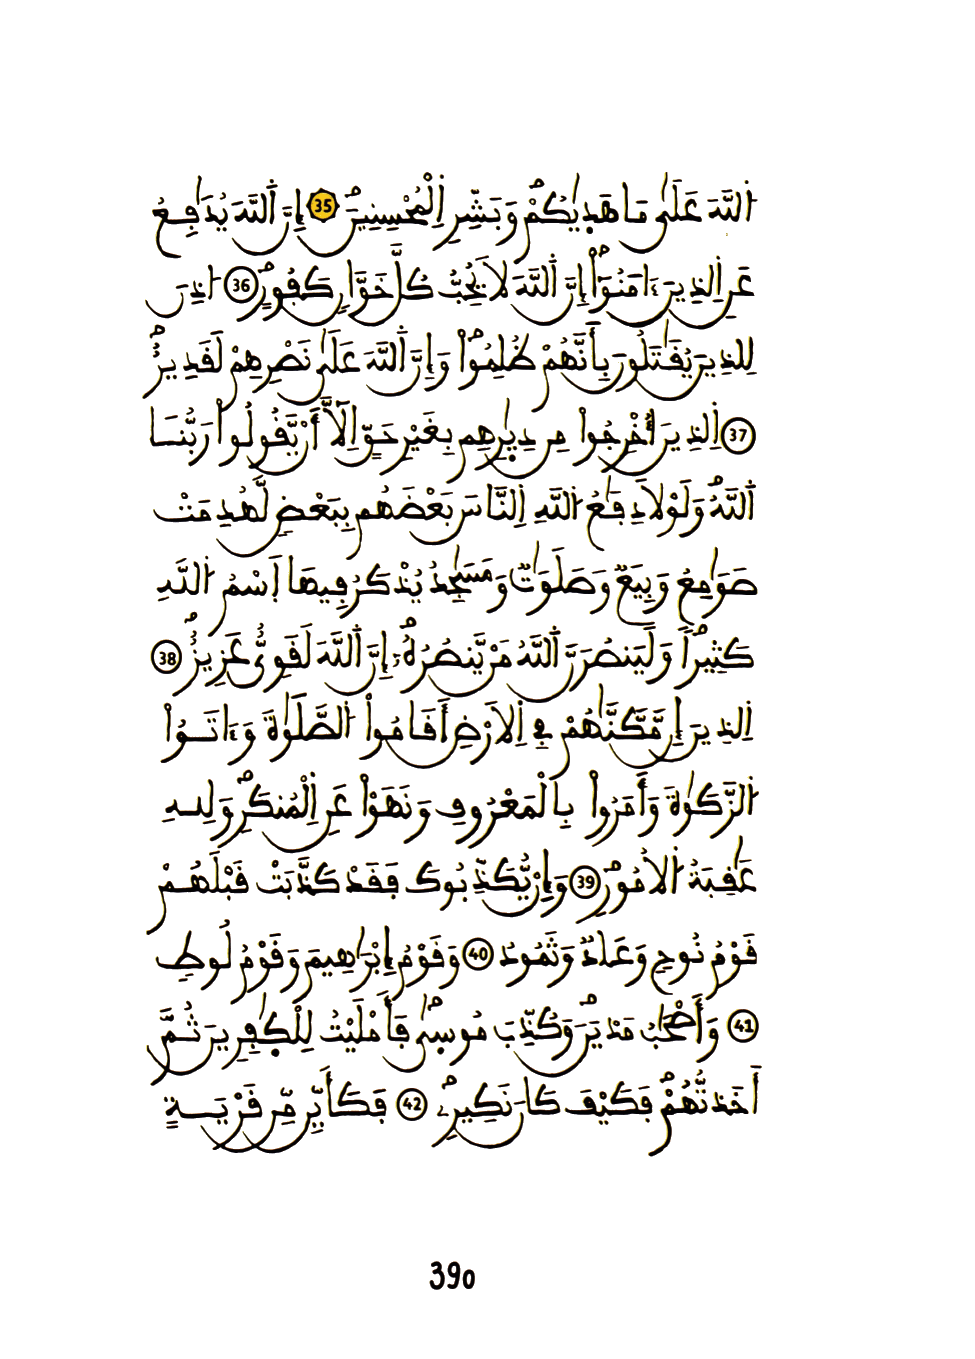 اَ۬للَّهَ عَلَىٰ مَا هَد۪يٰكُمْ وَبَشِّرِ اِ۬لْمُحْسِنِينَ 35 إِنَّ اَ۬للَّهَ يُدَٰفِعُ
عَنِ اِ۬لذِينَ ءَامَنُوٓاْ إِنَّ اَ۬للَّهَ لَا يُحِبُّ كُلَّ خَوَّانٖ كَفُورٍ 36 اذِنَ
لِلذِينَ يُقَٰتَلُونَ بِأَنَّهُمْ ظُلِمُواْ وَإِنَّ اَ۬للَّهَ عَلَىٰ نَصْرِهِمْ لَقَدِيرٌ
37 اِ۬لذِينَ أُخْرِجُواْ مِن دِيٰ۪رِهِم بِغَيْرِ حَقٍّ اِلَّآ أَنْ يَّقُولُواْ رَبُّنَا
اَ۬للَّهُ وَلَوْلَا دِفَٰعُ اُ۬للَّهِ اِ۬لنَّاسَ بَعْضَهُم بِبَعْضٖ لَّهُدِمَتْ
صَوَٰمِعُ وَبِيَعٌ وَصَلَوَٰتٌ وَمَسَٰجِدُ يُذْكَرُ فِيهَا اَ۪سْمُ اُ۬للَّهِ
كَثِيراً وَلَيَنصُرَنَّ اَ۬للَّهُ مَنْ يَّنصُرُهُۥٓ إِنَّ اَ۬للَّهَ لَقَوِيٌّ عَزِيزٌ 38
اِ۬لذِينَ إِن مَّكَّنَّٰهُمْ فِے اِ۬لَارْضِ أَقَامُواْ اُ۬لصَّلَوٰةَ وَءَاتَوُاْ
اُ۬لزَّكَوٰةَ وَأَمَرُواْ بِالْمَعْرُوفِ وَنَهَوْاْ عَنِ اِ۬لْمُنكَرِ وَلِلهِ
عَٰقِبَةُ اُ۬لُامُورِ 39 وَإِنْ يُّكَذِّبُوكَ فَقَدْ كَذَّبَتْ قَبْلَهُمْ
قَوْمُ نُوحٖ وَعَادٞ وَثَمُودُ 40 وَقَوْمُ إِبْرَٰهِيمَ وَقَوْمُ لُوطٖ
41 وَأَصْحَٰبُ مَدْيَنَ وَكُذِّبَ مُوس۪ىٰ فَأَمْلَيْتُ لِلْكٰ۪فِرِينَ ثُمَّ
أَخَذتُّهُمْ فَكَيْفَ كَانَ نَكِيرِۦ 42 فَكَأَيِّن مِّن قَرْيَةٍ
390